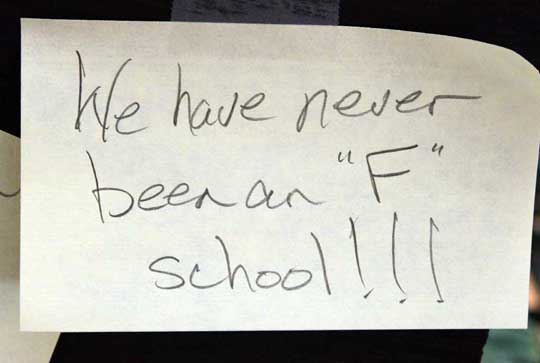 We have never
been an "F"
school!!!